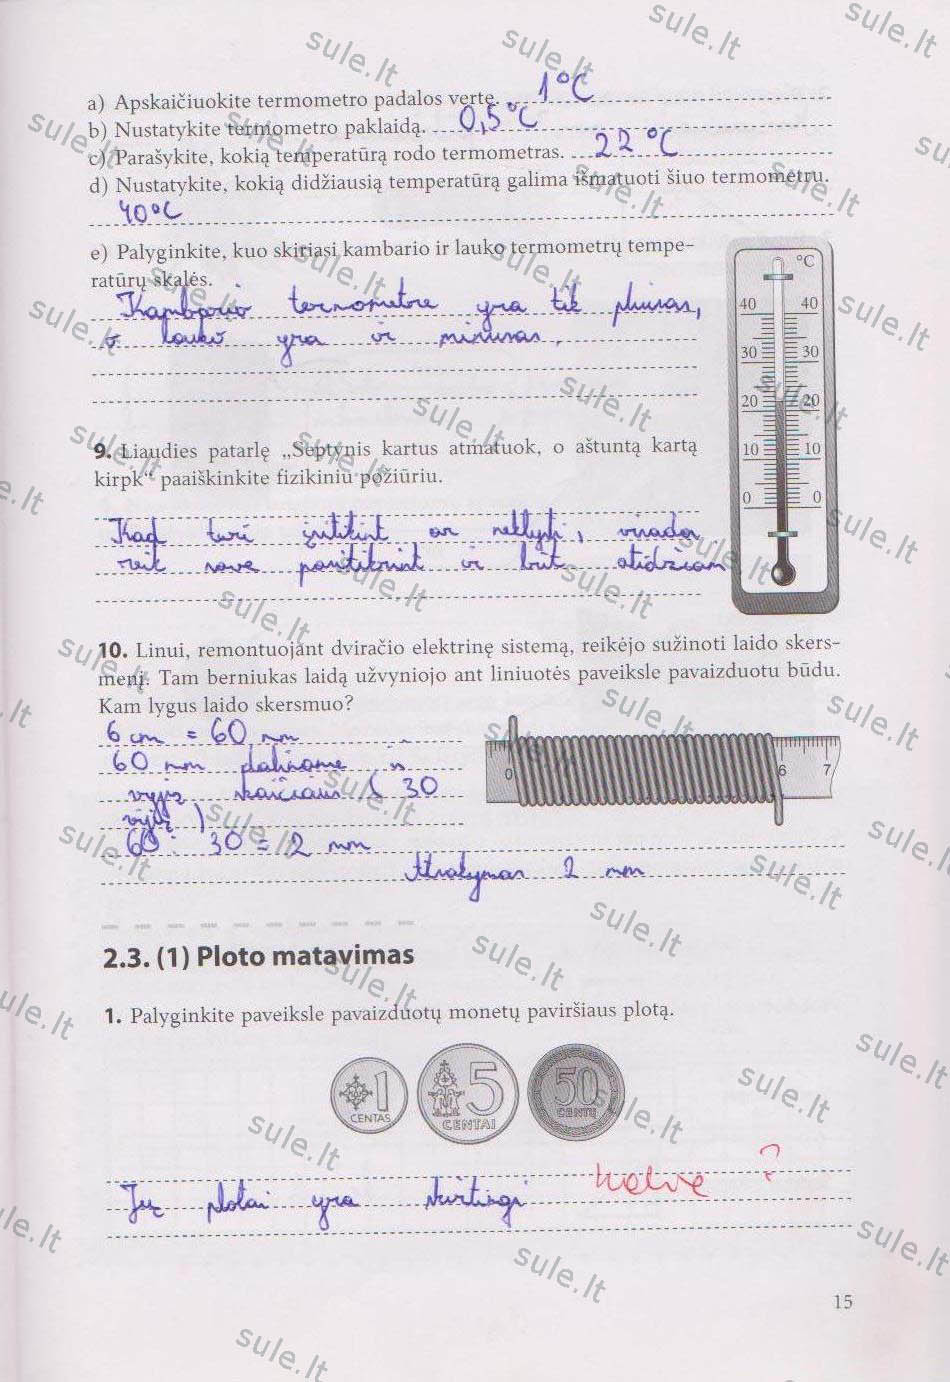 a) Apskaičiuokite termometro padalos vertę. 1°C
b) Nustatykite termometro paklaidą. 0,5°C
c) Parašykite, kokią temperatūrą rodo termometras. 22 °C
d) Nustatykite, kokią didžiausią temperatūrą galima išmatuoti šiuo termometru.
40°C
e) Palyginkite, kuo skiriasi kambario ir lauko termometrų tempe-
ratūrų skalės.
Kambario termometre yra tik pliusas,
o lauko yra ir minusas.
°C
40 40
30 30
20 20
10 10
0 0
9. Liaudies patarlę „Septynis kartus atmatuok, o aštuntą kartą
kirpk“ paaiškinkite fizikiniu požiūriu.
Kad turi įsitikint ar neklysti, visada
reik save pasitikrint ir būt atidžiam
10. Linui, remontuojant dviračio elektrinę sistemą, reikėjo sužinoti laido skers-
menį. Tam berniukas laidą užvyniojo ant liniuotės paveiksle pavaizduotu būdu.
Kam lygus laido skersmuo?
6 cm = 60 mm
60 mm daliname iš
vijų skaičiaus ( 30
vijų )
60 : 30 = 2 mm
Atsakymas 2 mm
0 6 7
2.3. (1) Ploto matavimas
1. Palyginkite paveiksle pavaizduotų monetų paviršiaus plotą.
1 CENTAS
5 CENTAI
50 CENTŲ
Jų plotai yra skirtingi
?
15
sule.lt